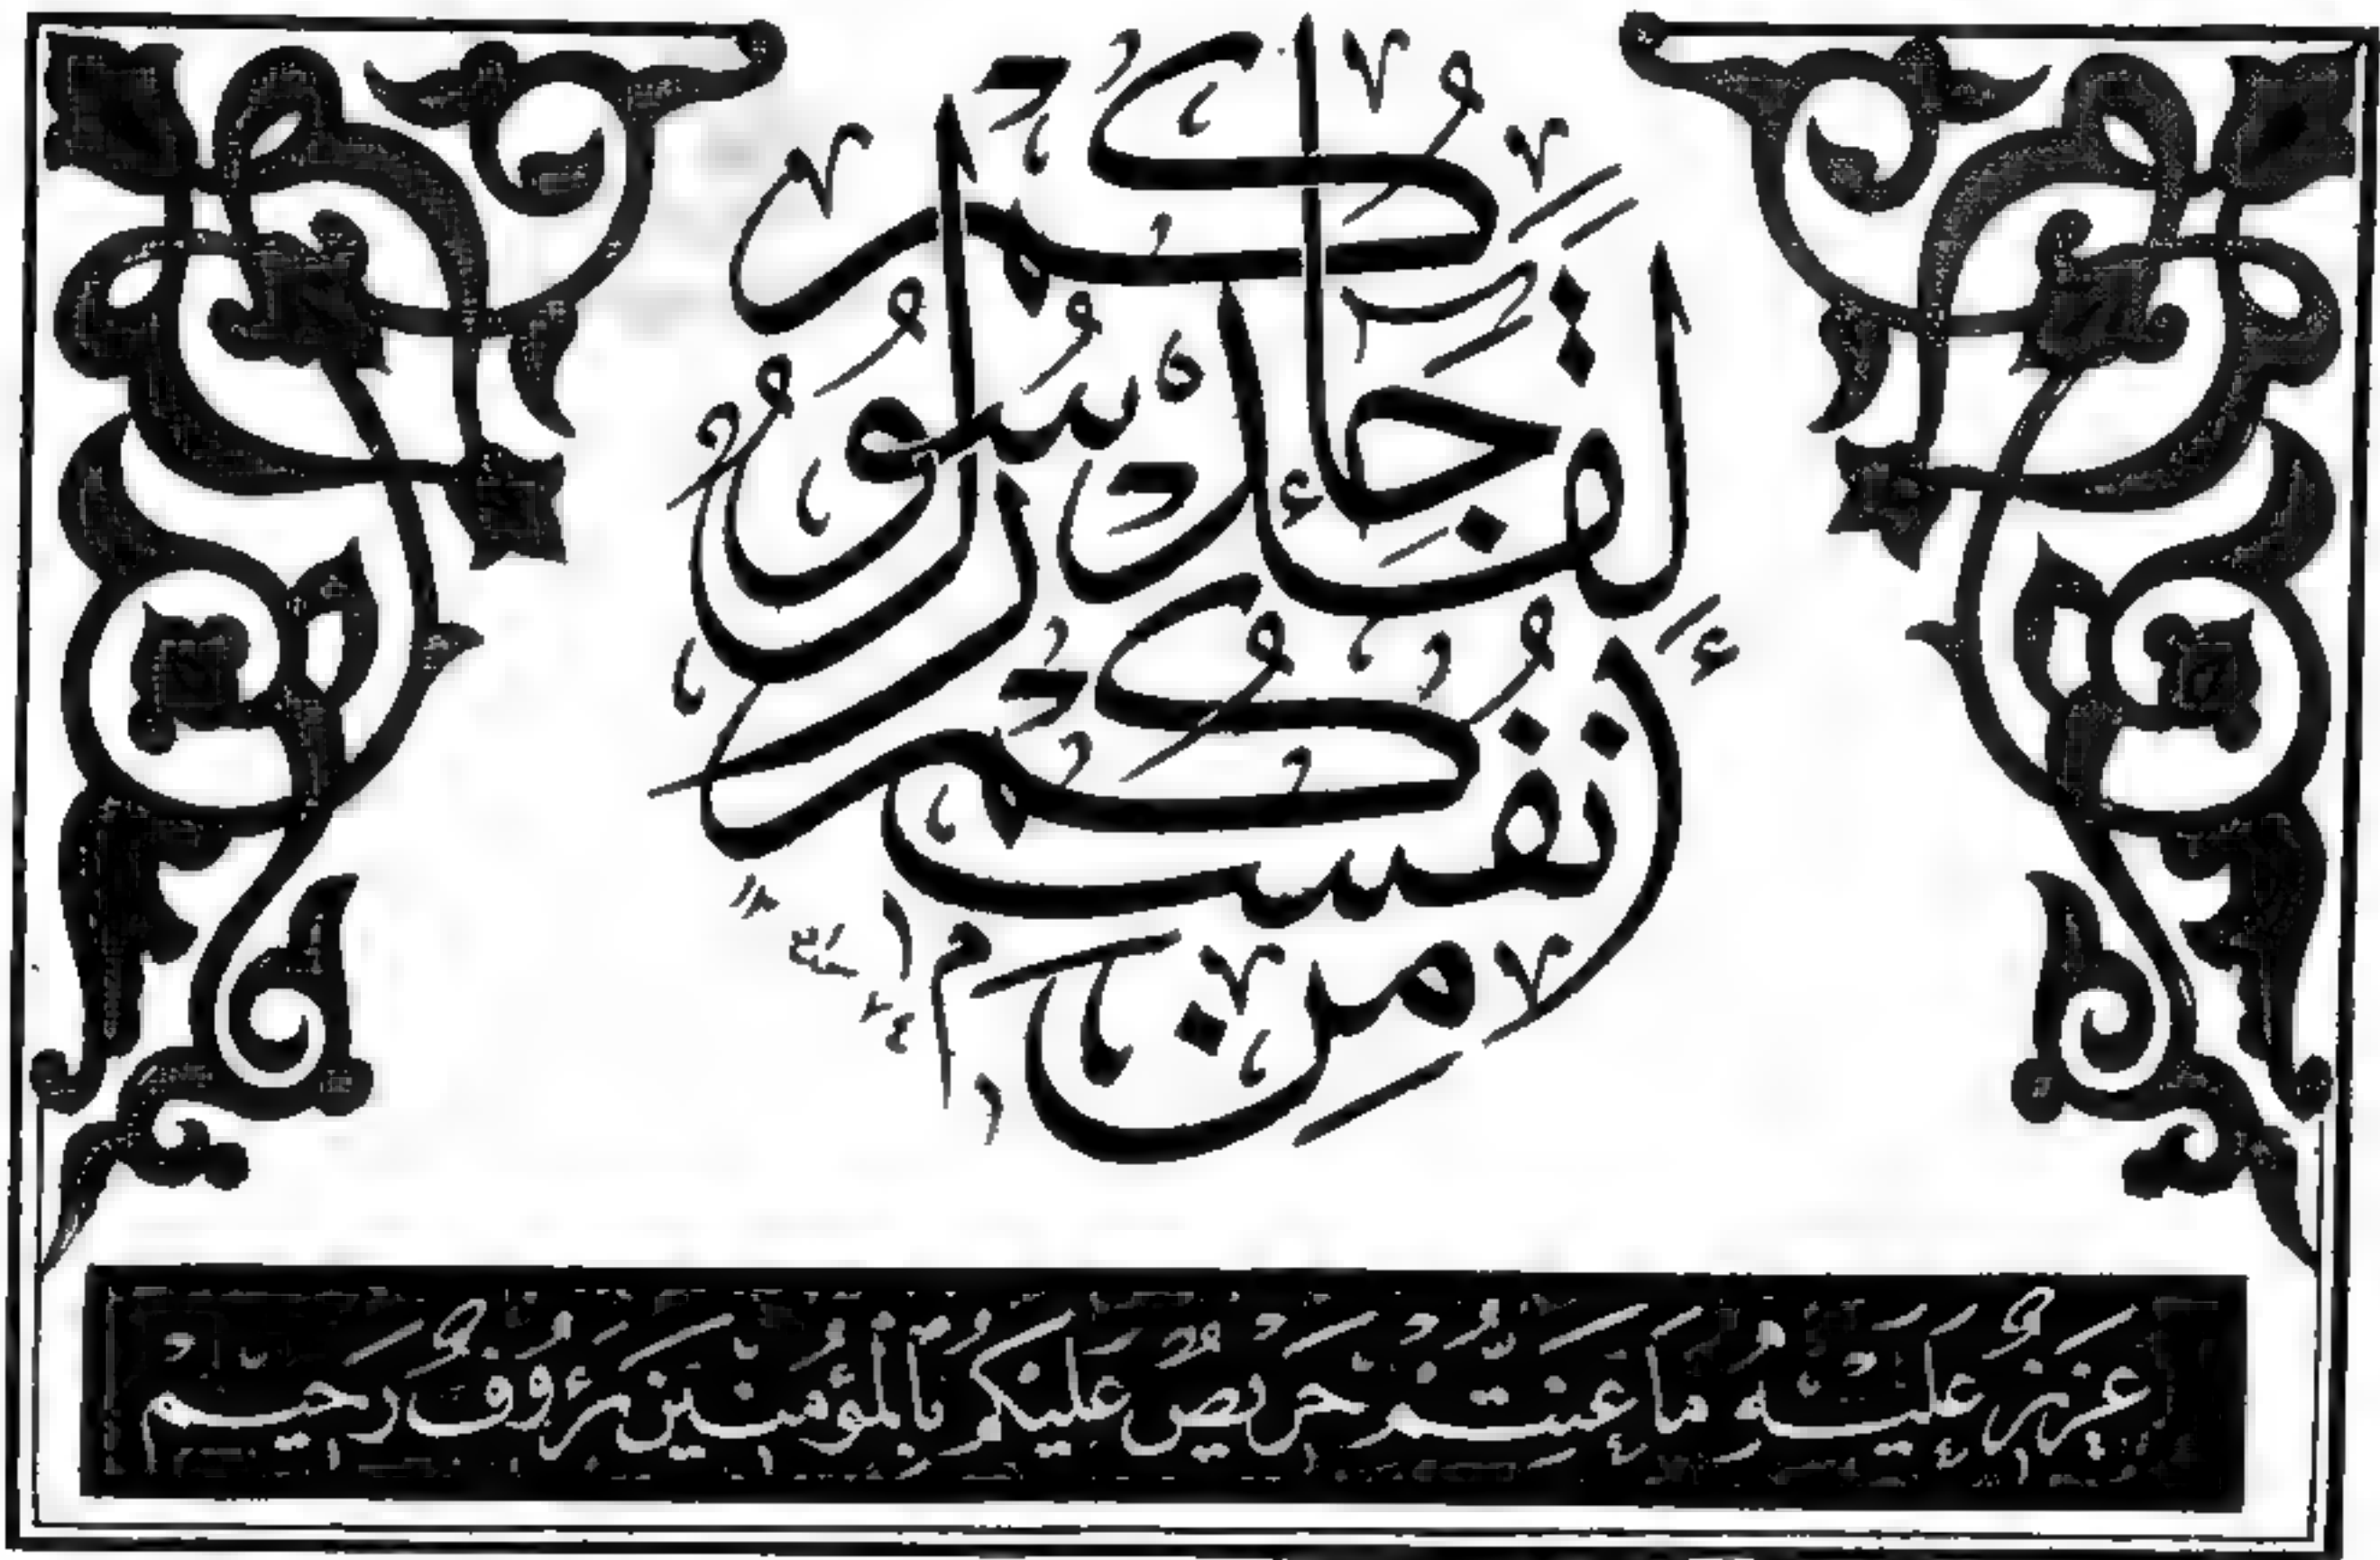 لَقَدْ جَاءَكُمْ رَسُولٌ مِنْ أَنْفُسِكُمْ
عَزِيزٌ عَلَيْهِ مَا عَنِتُّمْ حَرِيصٌ عَلَيْكُمْ بِالْمُؤْمِنِينَ رَءُوفٌ رَحِيمٌ